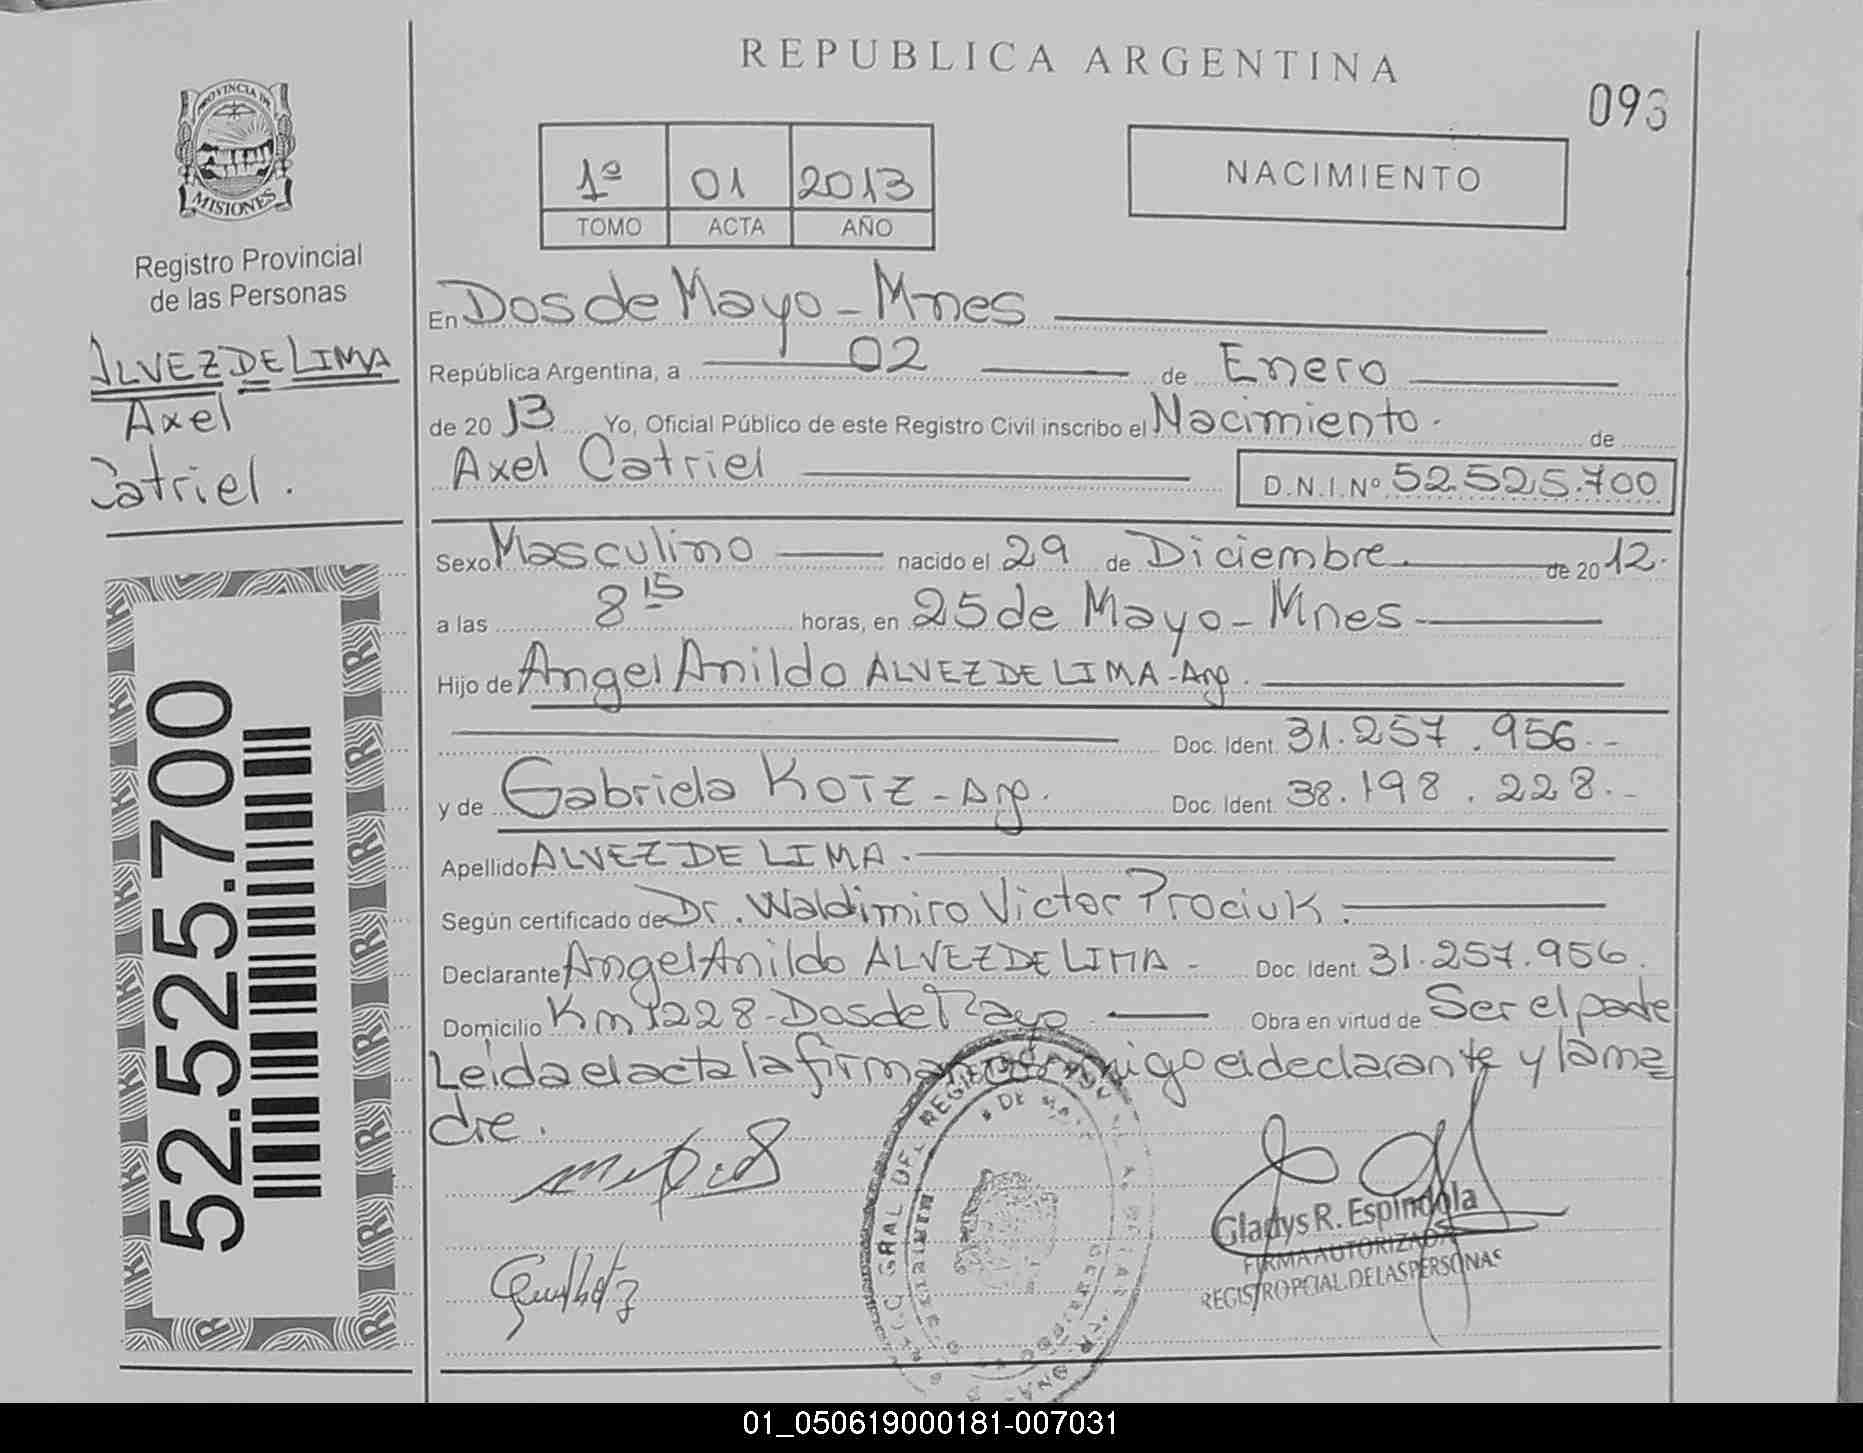 REPUBLICA ARGENTINA
093
PROVINCIA DE
MISIONES
Registro Provincial
de las Personas
ALVEZ DE LIMA
Axel
Catriel.
52.525.700
1º 01 2013
TOMO ACTA AÑO
NACIMIENTO
En Dos de Mayo - Mnes
República Argentina, a 02 de Enero
de 2013 Yo, Oficial Público de este Registro Civil inscribo el Nacimiento. de
Axel Catriel D.N.I.Nº 52.525.700
Sexo Masculino nacido el 29 de Diciembre de 2012.
a las 8 15 horas, en 25 de Mayo - Mnes
Hijo de Angel Anildo ALVEZ DE LIMA - Arg.
Doc. Ident. 31.257.956.-
y de Gabriela KOTZ - Arg. Doc. Ident. 38.198.228.-
Apellido ALVEZ DE LIMA.
Según certificado de Dr. Waldimiro Victor Prociuk.
Declarante Angel Anildo ALVEZ DE LIMA - Doc. Ident. 31.257.956.
Domicilio Km 1228 - Dos de Mayo Obra en virtud de Ser el padre
Leida el acta la firman conmigo el declarante y la ma
dre.
Gladys R. Espindola
FIRMA AUTORIZADA
REGISTRO PCIAL. DE LAS PERSONAS
01_050619000181-007031